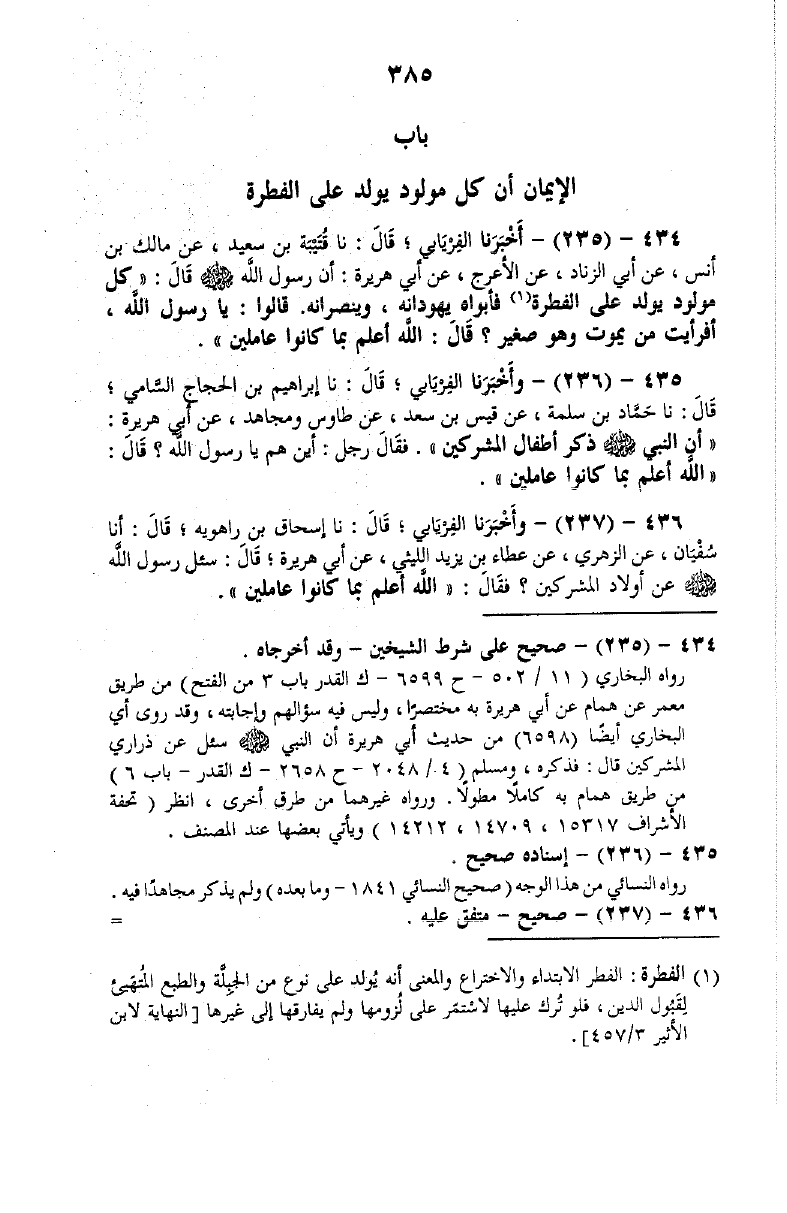 ٣٨٥
باب
الإيمان أن كل مولود يولد على الفطرة
٤٣٤ - (٢٣٥) - أَخْبَرَنا الفِرْيَابي ؛ قَالَ : نا قُتَيْبَة بن سعيد ، عن مالك بن
أنس ، عن أبي الزناد ، عن الأعرج ، عن أبي هريرة : أن رسول اللَّه ﷺ قَالَ : « كل
مولود يولد على الفطرة(١) فأبواه يهودانه ، وينصرانه. قالوا : يا رسول اللَّه ،
أفرأيت من يموت وهو صغير ؟ قَالَ : اللَّه أعلم بما كانوا عاملين » .
٤٣٥ - (٢٣٦) - وأَخْبَرَنا الفِرْيَابي ؛ قَالَ : نا إبراهيم بن الحجاج السَّامي ؛
قَالَ : نا حَمَّاد بن سلمة ، عن قيس بن سعد ، عن طاوس ومجاهد ، عن أبي هريرة :
« أن النبي ﷺ ذكر أطفال المشركين » . فقَالَ رجل : أين هم يا رسول اللَّه ؟ قَالَ :
« اللَّه أعلم بما كانوا عاملين » .
٤٣٦ - (٢٣٧) - وأَخْبَرَنا الفِرْيَابي ؛ قَالَ : نا إسحاق بن راهويه ؛ قَالَ : أنا
سُفْيَان ، عن الزهري ، عن عطاء بن يزيد الليثي ، عن أبي هريرة ؛ قَالَ : سئل رسول اللَّه
ﷺ عن أولاد المشركين ؟ فقَالَ : « اللَّه أعلم بما كانوا عاملين » .
٤٣٤ - (٢٣٥) - صحيح على شرط الشيخين - وقد أخرجاه .
رواه البخاري ( ١١ / ٥٠٢ - ح ٦٥٩٩ - ك القدر باب ٣ من الفتح ) من طريق
معمر عن همام عن أبي هريرة به مختصرًا ، وليس فيه سؤالهم وإجابته ، وقد روى أي
البخاري أيضًا (٦٥٩٨) من حديث أبي هريرة أن النبي ﷺ سئل عن ذراري
المشركين قال : فذكره ، ومسلم ( ٤ / ٢٠٤٨ - ح ٢٦٥٨ - ك القدر - باب ٦ )
من طريق همام به كاملًا مطولًا . ورواه غيرهما من طرق أخرى ، انظر ( تحفة
الأشراف ١٥٣١٧ ، ١٤٧٠٩ ، ١٤٢١٢ ) ويأتي بعضها عند المصنف .
٤٣٥ - (٢٣٦) - إسناده صحيح .
رواه النسائي من هذا الوجه ( صحيح النسائي ١٨٤١ - وما بعده ) ولم يذكر مجاهدًا فيه .
٤٣٦ - (٢٣٧) - صحيح - متفق عليه . =
(١) الفطرة : الفطر الابتداء والاختراع والمعنى أنه يُولد على نوع من الجِبِلَّة والطبع المُتَهَيئ
لِقَبُول الدين ، فلو تُرك عليها لاسْتمّر على لُزومها ولم يفارقها إلى غيرها [ النهاية لابن
الأثير ٤٥٧/٣] .